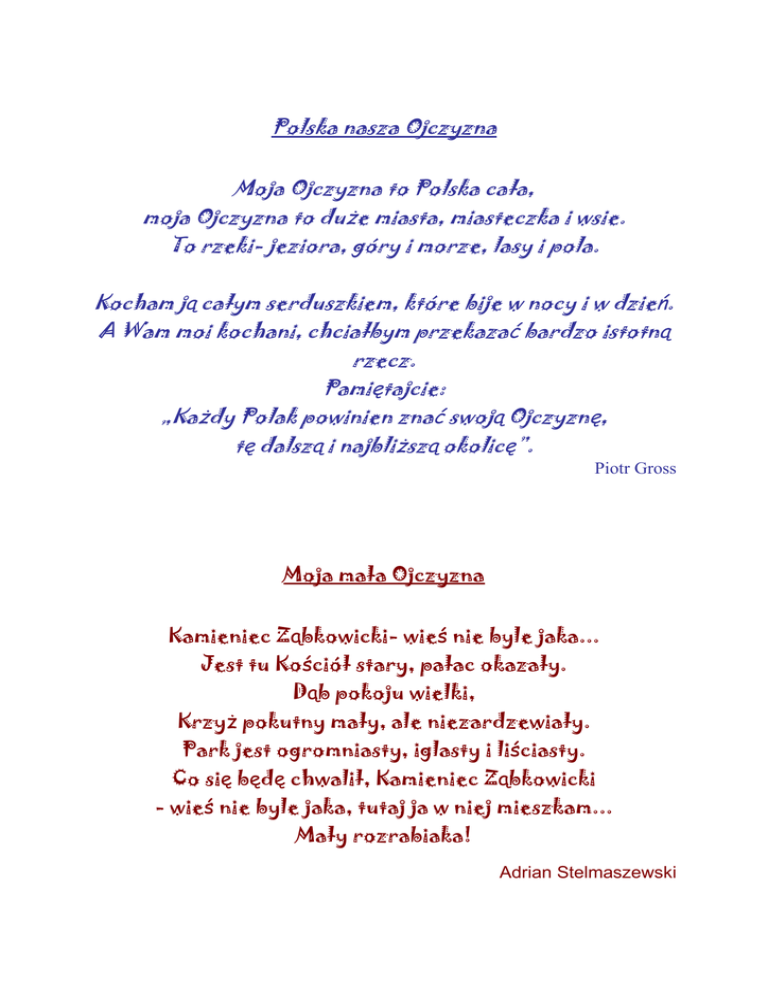 Polska nasza Ojczyzna
Moja Ojczyzna to Polska cała,
moja Ojczyzna to duże miasta, miasteczka i wsie.
To rzeki- jeziora, góry i morze, lasy i pola.
Kocham ją całym serduszkiem, które bije w nocy i w dzień.
A Wam moi kochani, chciałbym przekazać bardzo istotną
rzecz.
Pamiętajcie:
„Każdy Polak powinien znać swoją Ojczyznę,
tę dalszą i najbliższą okolicę”.
Piotr Gross
Moja mała Ojczyzna
Kamieniec Ząbkowicki- wieś nie byle jaka...
Jest tu Kościół stary, pałac okazały.
Dąb pokoju wielki,
Krzyż pokutny mały, ale niezardzewiały.
Park jest ogromniasty, iglasty i liściasty.
Co się będę chwalił, Kamieniec Ząbkowicki
- wieś nie byle jaka, tutaj ja w niej mieszkam...
Mały rozrabiaka!
Adrian Stelmaszewski